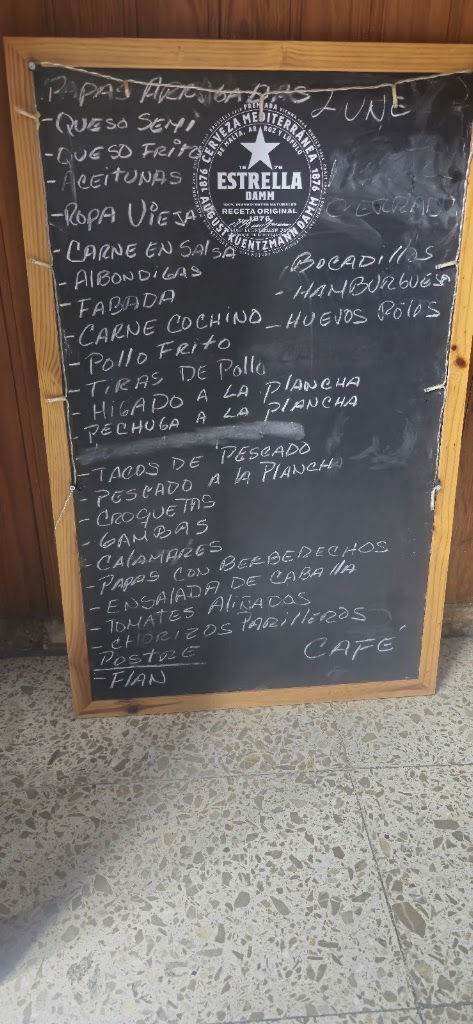 PAPAS ARRUGADAS
- QUESO SEMI
- QUESO FRITO
- ACEITUNAS
- ROPA VIEJA
- CARNE EN SALSA
- ALBONDIGAS
- FABADA
- CARNE COCHINO
- POLLO FRITO
- TIRAS DE POllO
- HIGADO A LA PLANCHA
- PECHUGA A LA PLANCHA
- TACOS DE PESCADO
- PESCADO A lA PLANCHA
- CROQUETAS
- GAMBAS
- CALAMARES
- PAPAS CON BERBEDECHOS
- ENSALADA DE CABAllA
- TOMATES AliÑADOS
- CHORIZOS PARILLEROS
POSTRE
- FlAN
LUNE
BOCADIllOS
- HAMBURGUESA
- HUEVOS ROTOS
CAFÉ
PREMIADA
CERVEZA MEDITERRÁNEA
DE MALTA, ARROZ Y LÚPULO
1876
1876
ESTRELLA
DAMM
RECETA ORIGINAL
1876
AUGUST KUENTZMANN DAMM